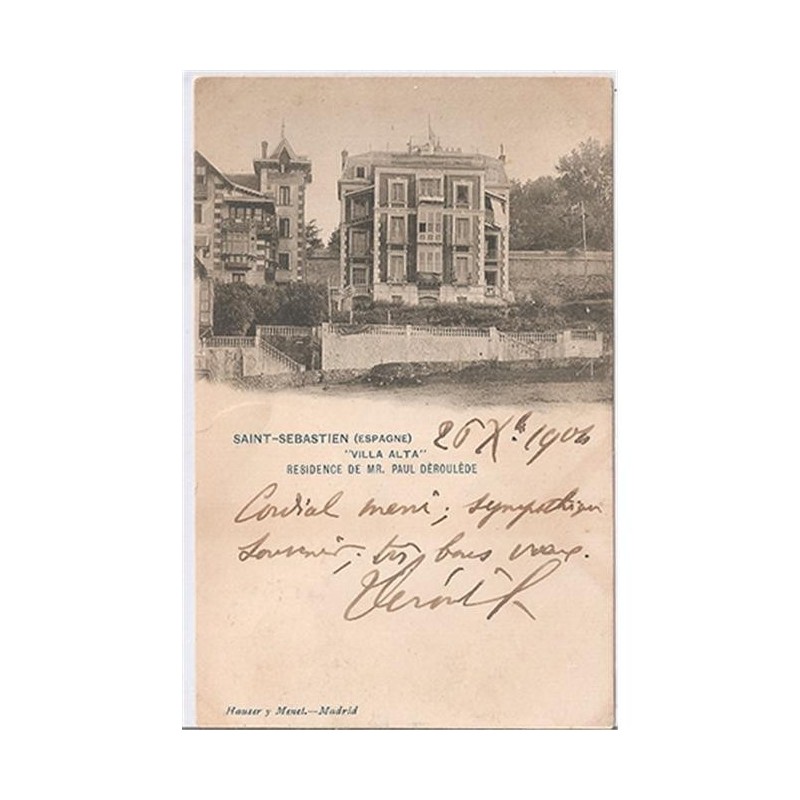 SAINT-SEBASTIEN (ESPAGNE)
26 Xbre 190
"VILLA ALTA"
RESIDENCE DE MR. PAUL DÉROULÈDE
Cordial merci; sympathique
souvenir; très bons vœux.
Hauser y Menet.—Madrid